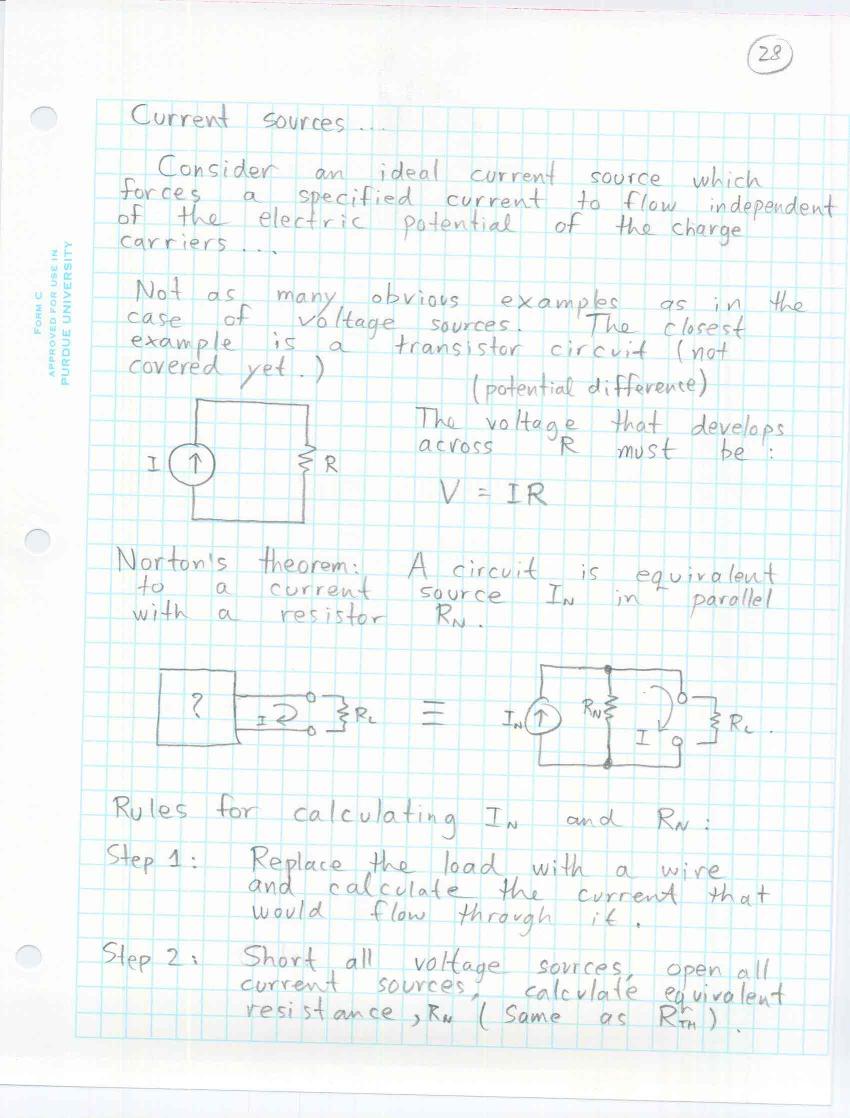 28
Current sources ...
Consider an ideal current source which
forces a specified current to flow independent
of the electric potential of the charge
carriers ...
FORM C
APPROVED FOR USE IN
PURDUE UNIVERSITY
Not as many obvious examples as in the
case of voltage sources. The closest
example is a transistor circuit (not
covered yet.)
(potential difference)
The voltage that develops
across R must be :
I
R
V = IR
Norton's theorem: A circuit is equivalent
to a current source IN in parallel
with a resistor RN.
? I RL ≡ IN RN I RL.
Rules for calculating IN and RN :
Step 1: Replace the load with a wire
and calculate the current that
would flow through it.
Step 2: Short all voltage sources, open all
current sources, calculate equivalent
resistance, RN (same as RTH).